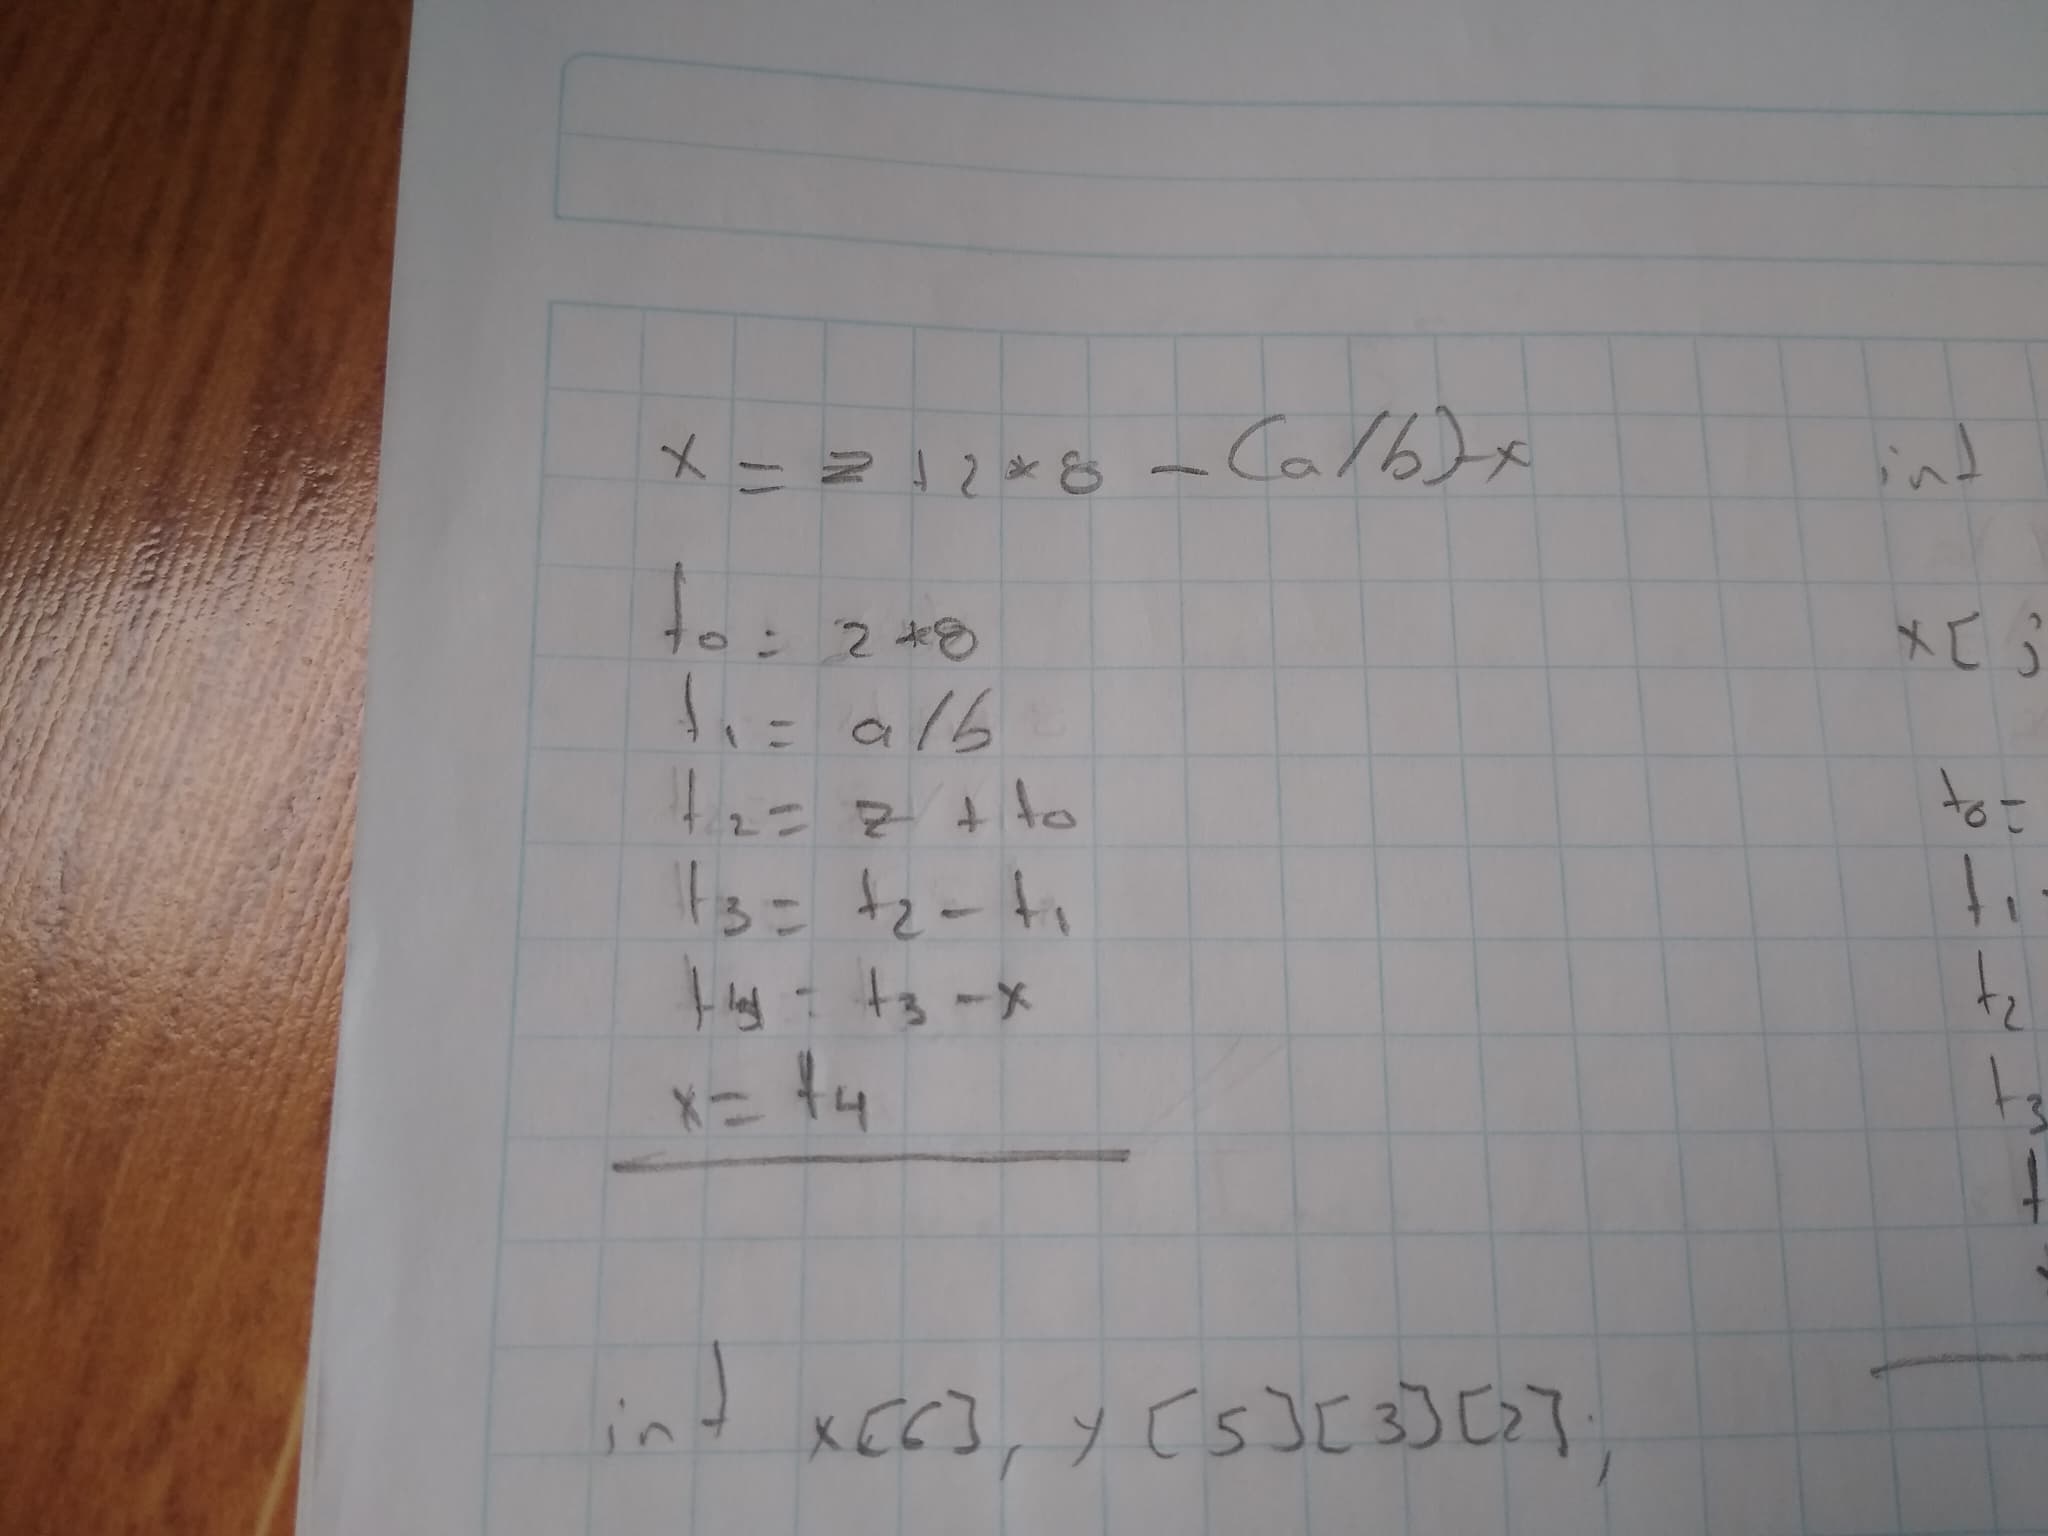 x = z + 2 * 8 - (a/b) - x
t0 = 2 * 8
t1 = a/b
t2 = z + t0
t3 = t2 - t1
t4 = t3 - x
x = t4
int x[6], y[5][3][2];
int
x[j
t0 =
t1
t2
t3
t